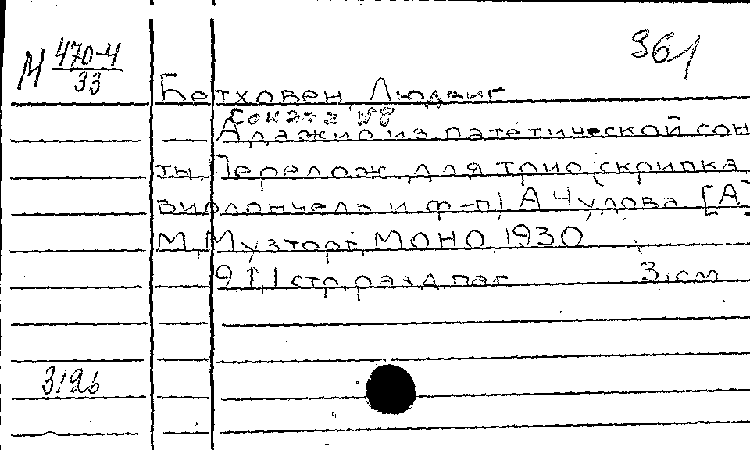 М 470-4
33
961
Бетховен, Людвиг
Соната №8
Адажио из патетической сон
ты. Перелож. для трио (скрипка
виолончель и ф-п) А Чулова [А
М, Музторг МОНО, 1930
9, 1, 1 стр. разд. паг.
3 см